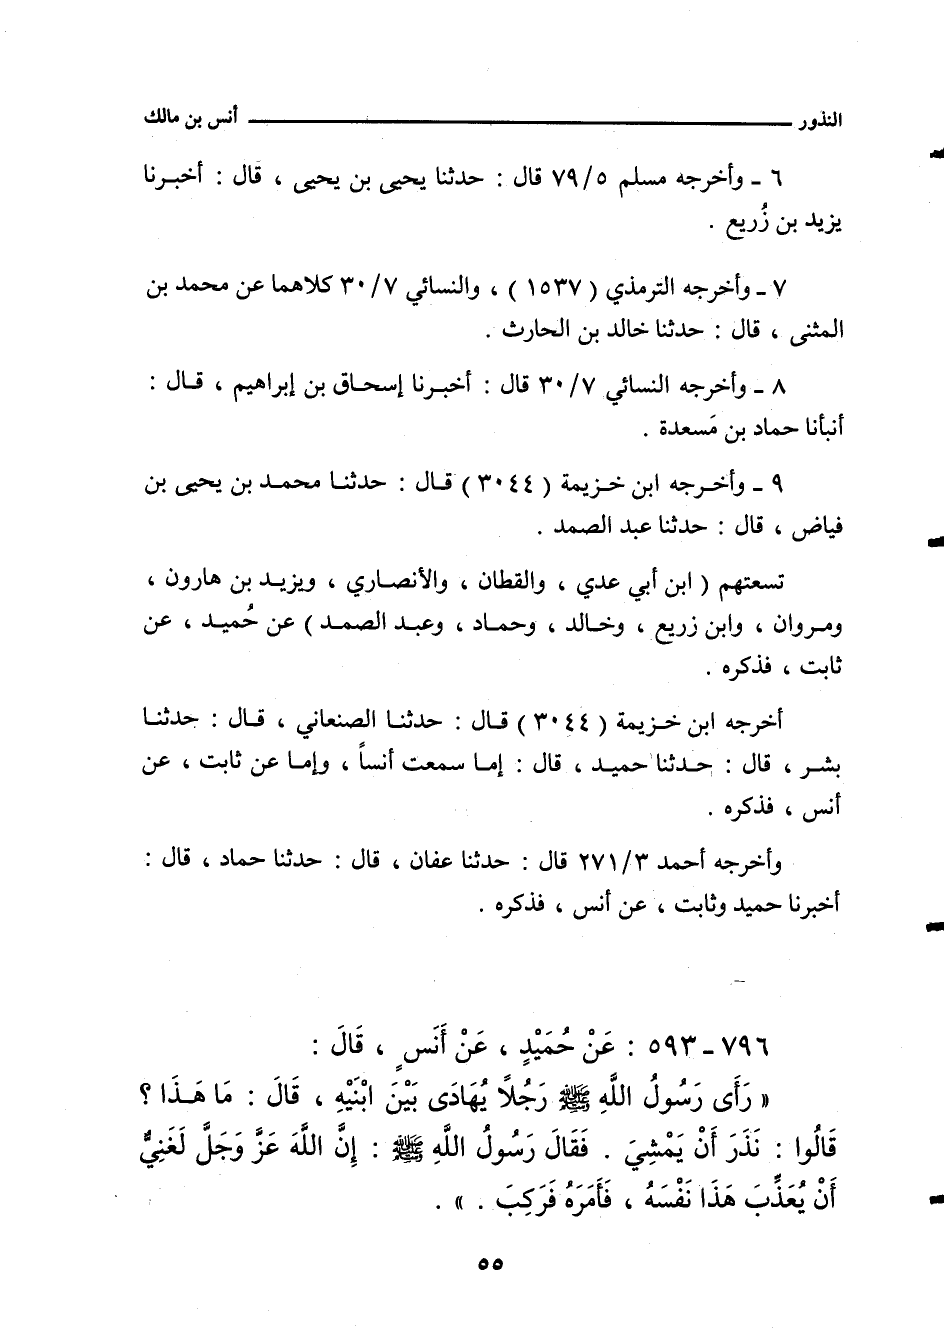 النذور ــــــــــــــــــــ أنس بن مالك
٦ ـ وأخرجه مسلم ٧٩/٥ قال : حدثنا يحيى بن يحيى ، قال : أخبرنا
يزيد بن زُريع .
٧ ـ وأخرجه الترمذي ( ١٥٣٧ ) ، والنسائي ٣٠/٧ كلاهما عن محمد بن
المثنى ، قال : حدثنا خالد بن الحارث .
٨ ـ وأخرجه النسائي ٣٠/٧ قال : أخبرنا إسحاق بن إبراهيم ، قال :
أنبأنا حماد بن مَسعدة .
٩ ـ وأخرجه ابن خزيمة ( ٣٠٤٤ ) قال : حدثنا محمد بن يحيى بن
فياض ، قال : حدثنا عبد الصمد .
تسعتهم ( ابن أبي عدي ، والقطان ، والأنصاري ، ويزيد بن هارون ،
ومروان ، وابن زريع ، وخالد ، وحماد ، وعبد الصمد ) عن حُميد ، عن
ثابت ، فذكره .
أخرجه ابن خزيمة ( ٣٠٤٤ ) قال : حدثنا الصنعاني ، قال : حدثنا
بشر ، قال : حدثنا حميد ، قال : إما سمعت أنساً ، وإما عن ثابت ، عن
أنس ، فذكره .
وأخرجه أحمد ٢٧١/٣ قال : حدثنا عفان ، قال : حدثنا حماد ، قال :
أخبرنا حميد وثابت ، عن أنس ، فذكره .
٧٩٦ ـ ٥٩٣ : عَنْ حُمَيْدٍ ، عَنْ أَنَسٍ ، قَالَ :
« رَأَى رَسُولُ اللَّهِ ﷺ رَجُلًا يُهَادَى بَيْنَ ابْنَيْهِ ، قَالَ : مَا هَذَا ؟
قَالُوا : نَذَرَ أَنْ يَمْشِيَ . فَقَالَ رَسُولُ اللَّهِ ﷺ : إِنَّ اللَّهَ عَزَّ وَجَلَّ لَغَنِيٌّ
أَنْ يُعَذِّبَ هَذَا نَفْسَهُ ، فَأَمَرَهُ فَرَكِبَ . » .
٥٥